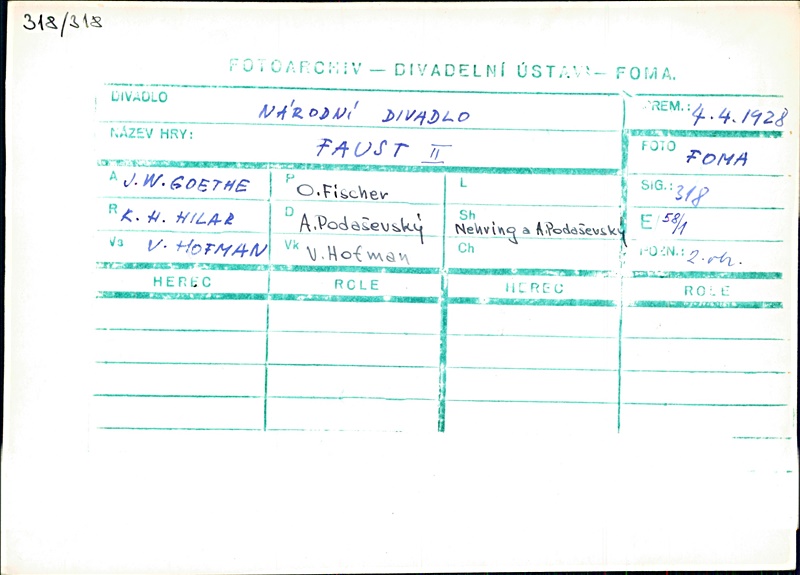 318/318
FOTOARCHIV — DIVADELNÍ ÚSTAV — FOMA.
DIVADLO NÁRODNÍ DIVADLO PREM.: 4.4.1928
NÁZEV HRY: FAUST II FOTO FOMA
A J.W. GOETHE P O. Fischer L SIG.: 318
R K. H. HILAR D A. Podaševský Sh Nehring a A. Podaševský E 58/1
V. HOFMAN Vk V. Hofman Ch POZN.: 2. vh.
HEREC ROLE HEREC ROLE